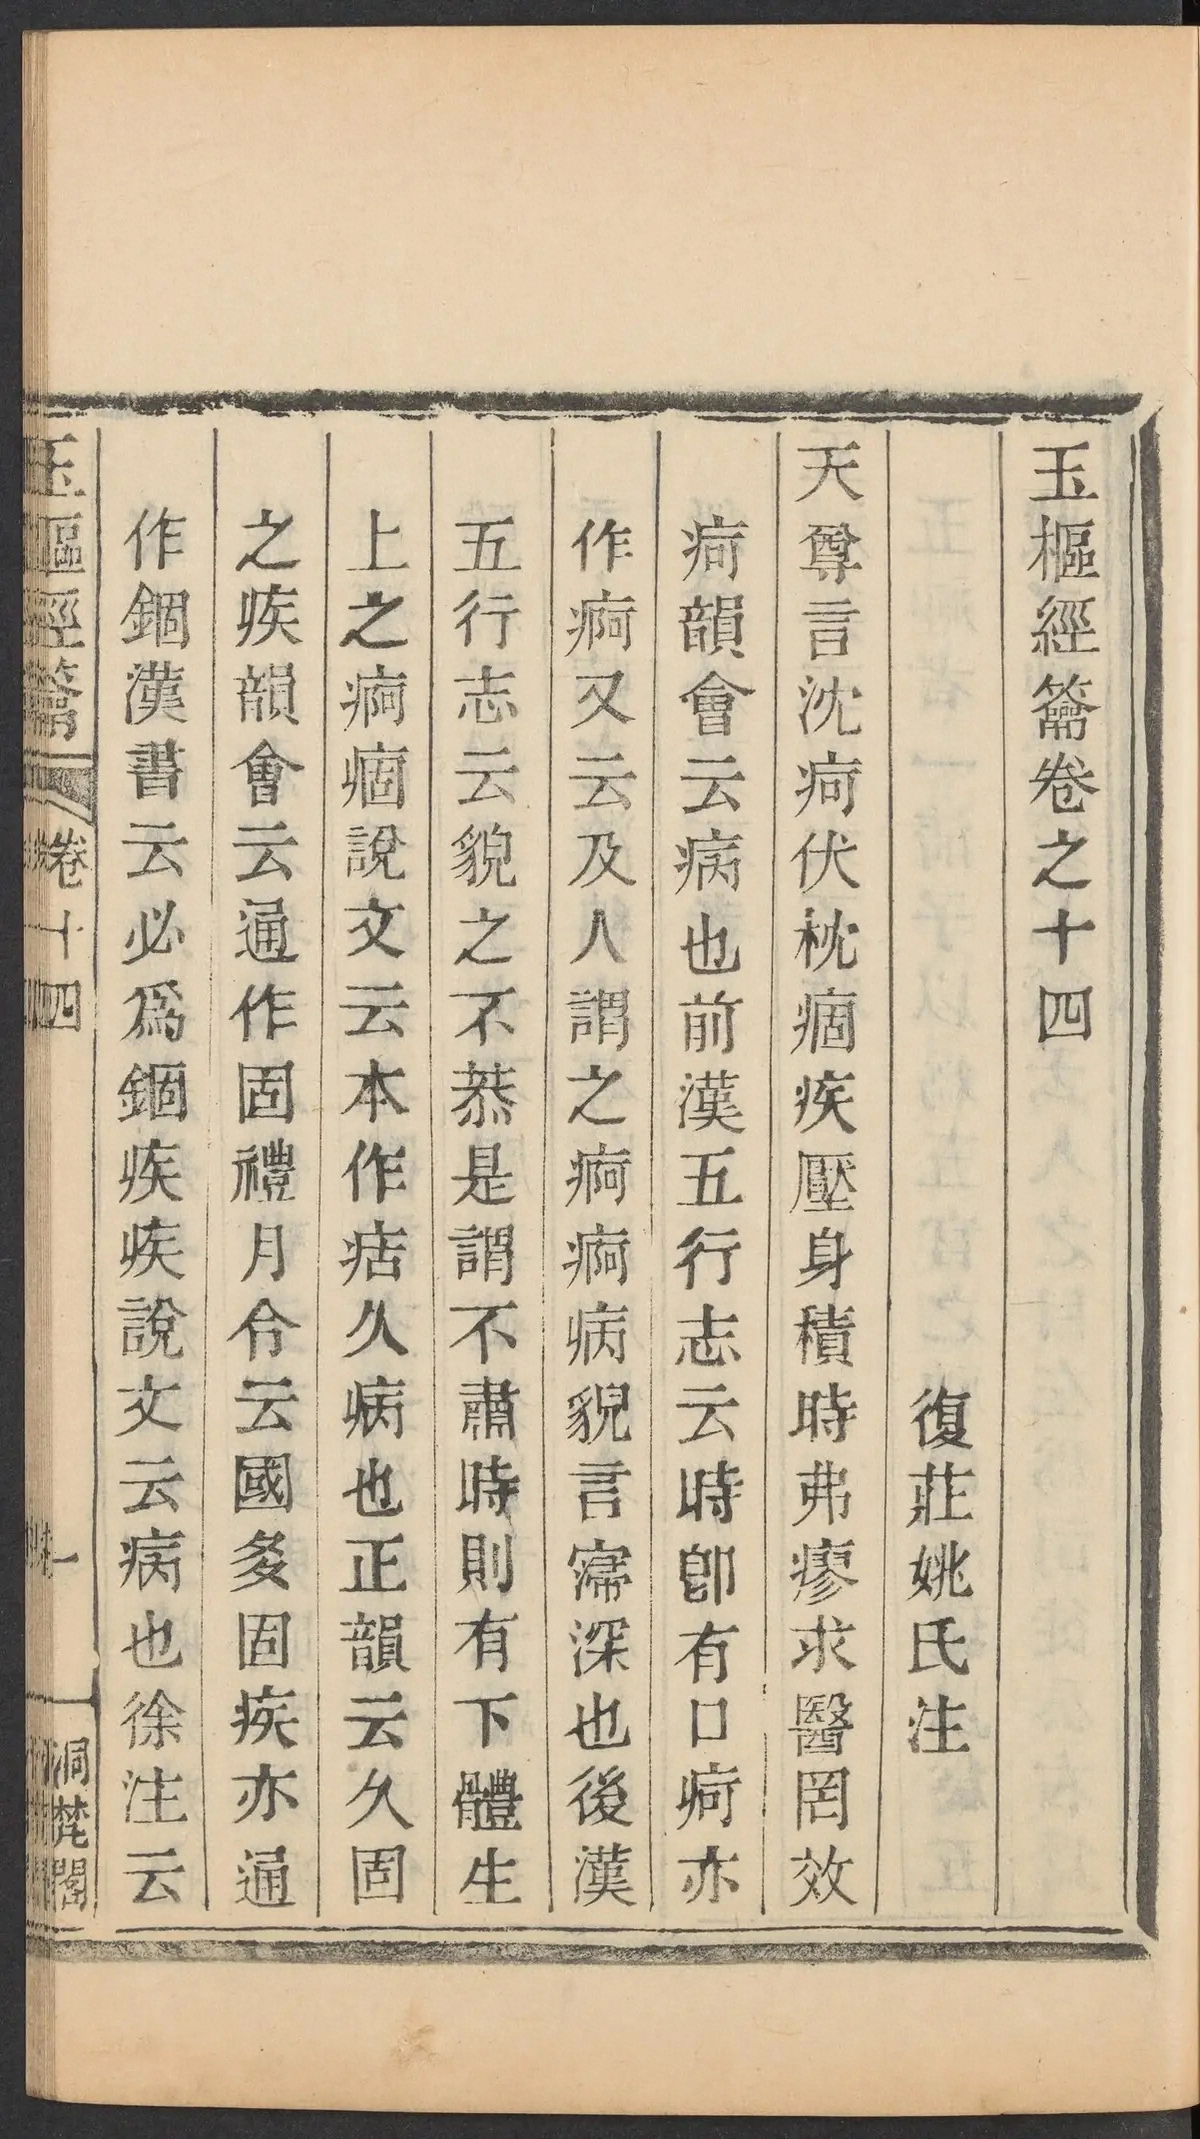 玉樞經籥卷之十四
復莊姚氏注
天尊言沈疴伏枕痼疾壓身積時弗瘳求醫罔效
疴韻會云病也前漢五行志云時卽有口疴亦
作痾又云及人謂之痾痾病貌言寖深也後漢
五行志云貌之不恭是謂不肅時則有下體生
上之痾痼說文云本作㽽久病也正韻云久固
之疾韻會云通作固禮月令云國多固疾亦通
作錮漢書云必爲錮疾疾說文云病也徐注云
玉樞經籥
卷十四
一
洞梵閣